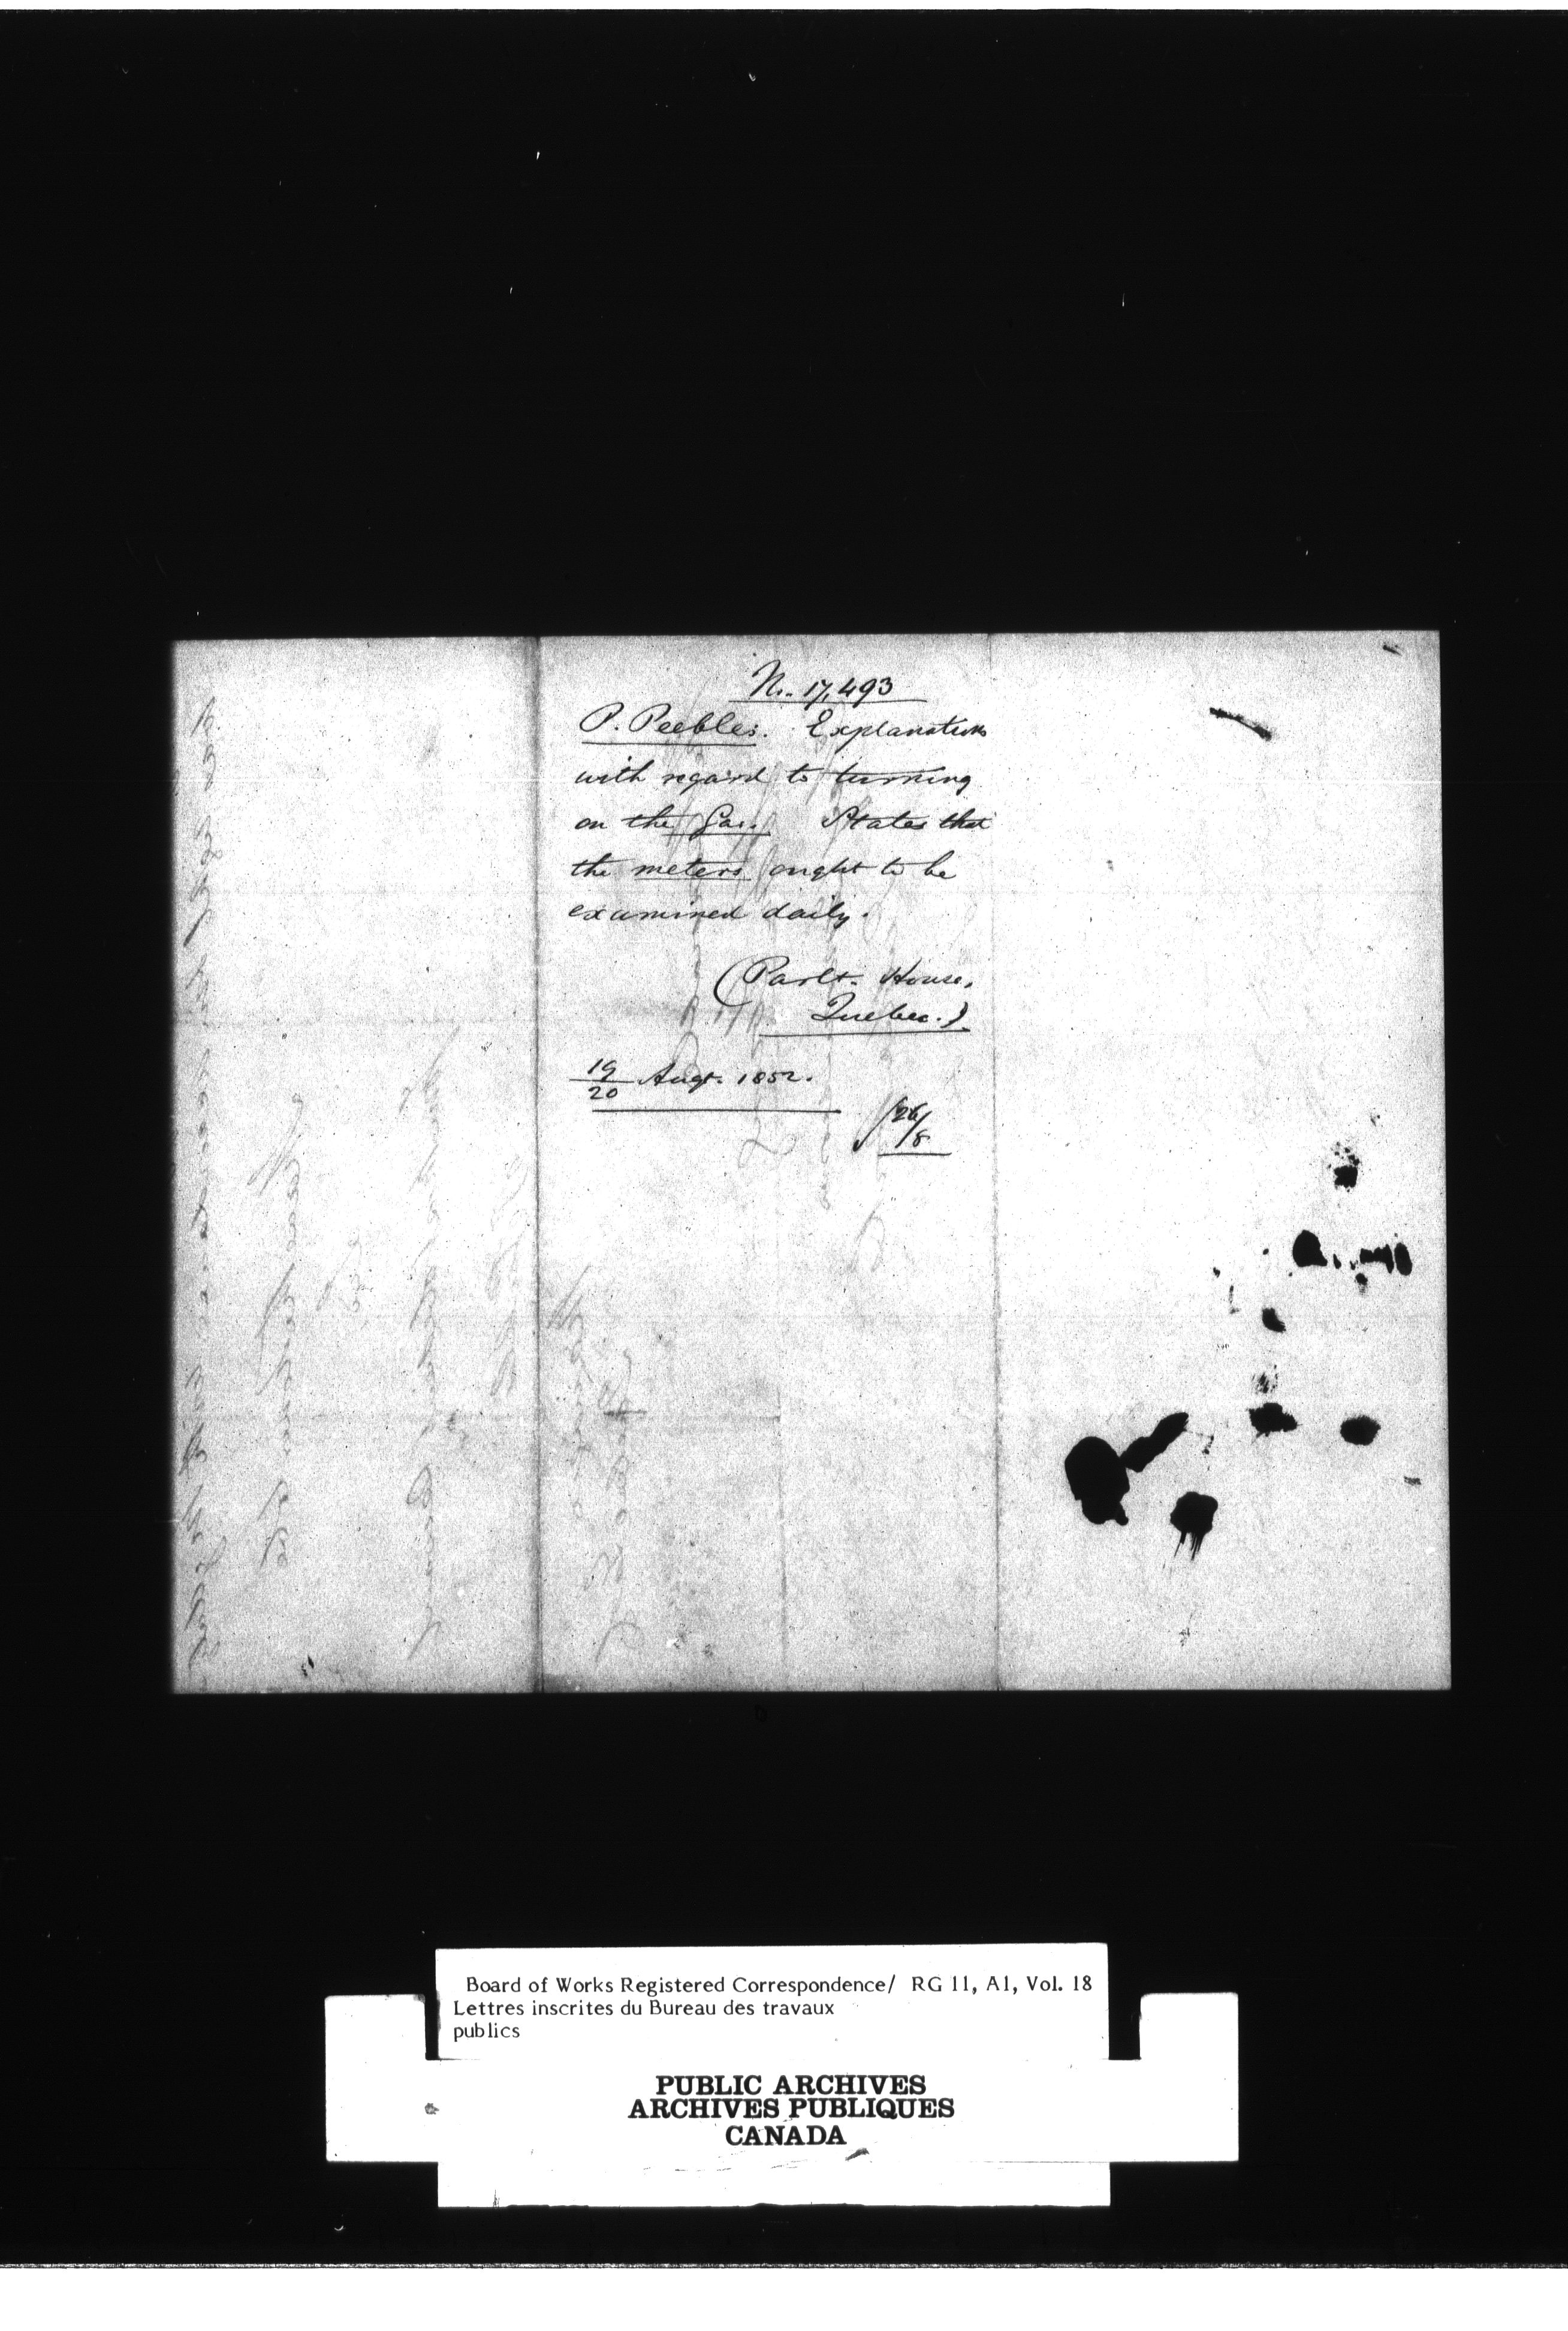 No. 17,493
P. Peebles. Explanation
with regard to turning
on the Gas. States that
the meters ought to be
examined daily.
(Parlt. House,
Quebec.)
19/20 Augt. 1852.
26/8
Board of Works Registered Correspondence/ RG 11, A1, Vol. 18
Lettres inscrites du Bureau des travaux
publics
PUBLIC ARCHIVES
ARCHIVES PUBLIQUES
CANADA